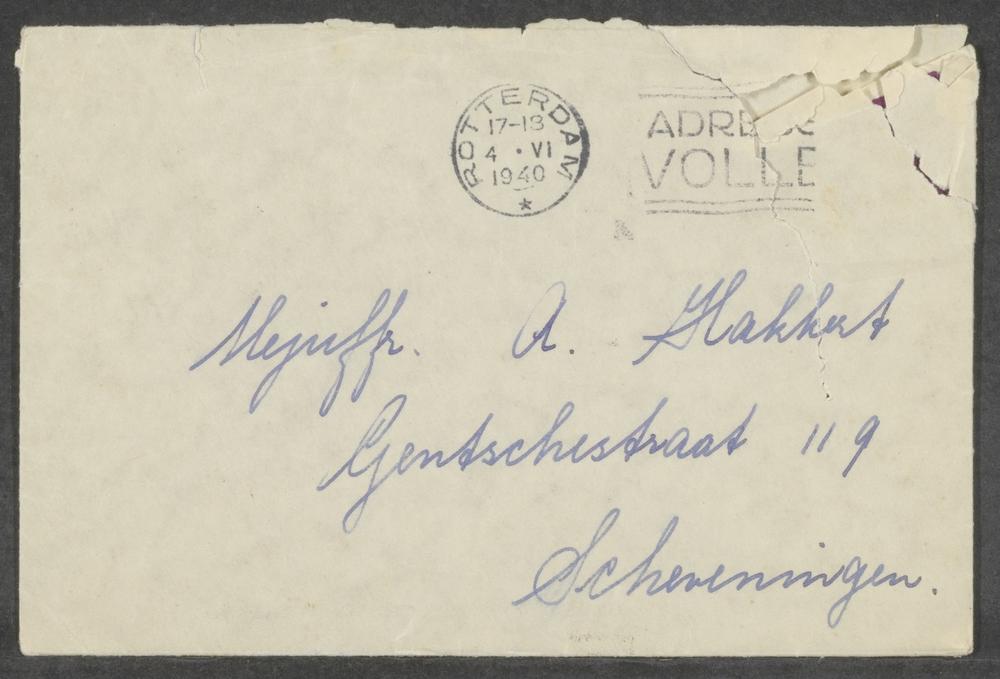 ROTTERDAM
17-18
4 · VI
1940
VOLLE
Mejuffr. A. Hakkert
Gentschestraat 119
Scheveningen.